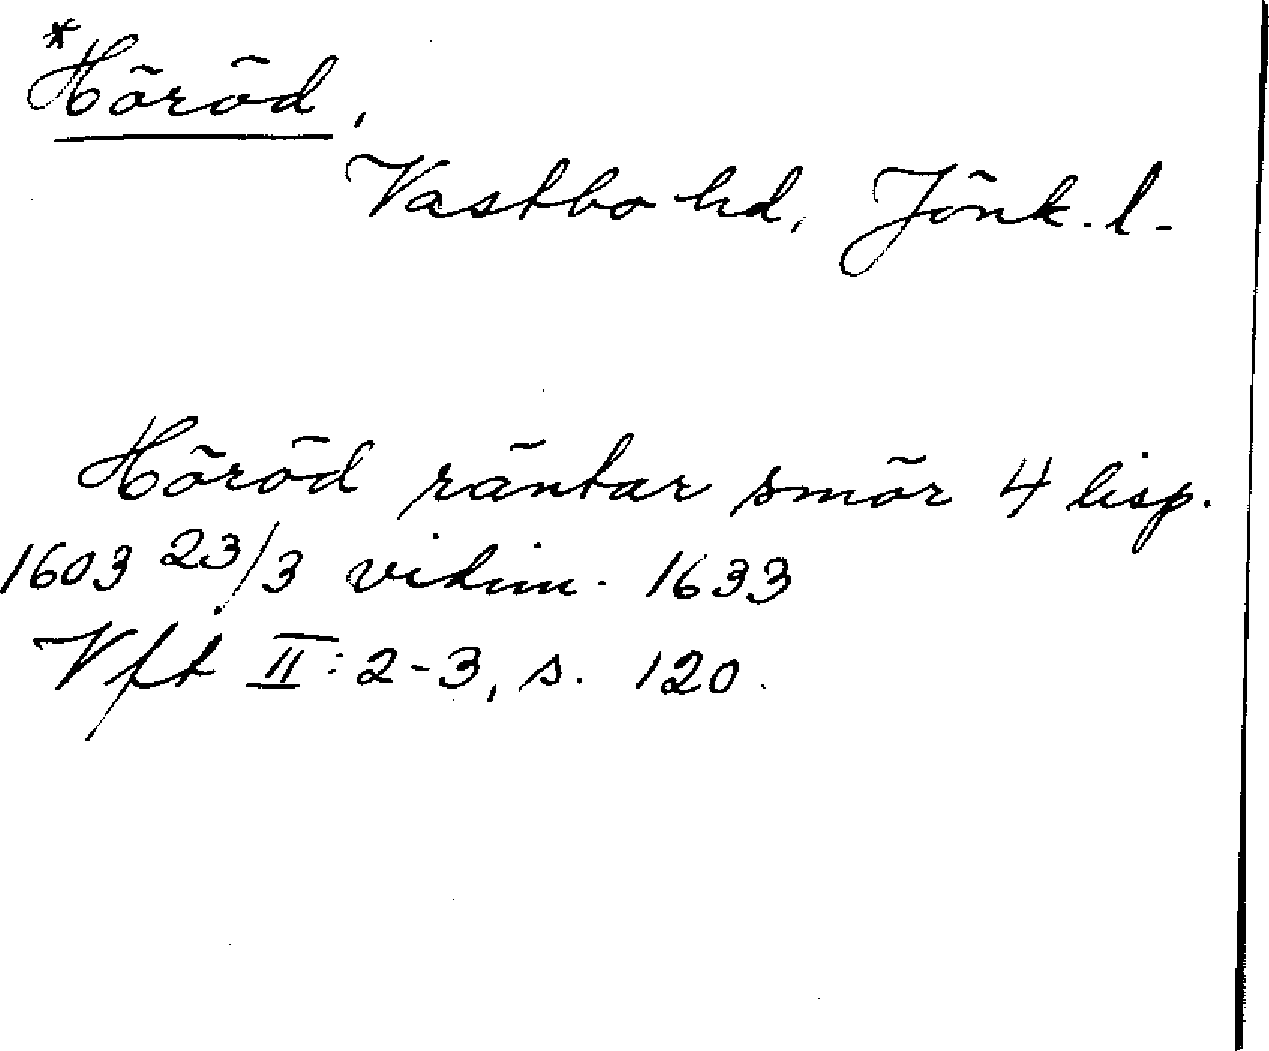 *Höröd,
Vastbo hd, Jönk. l.
Höröd räntar smör 4 lisp.
1603 23/3 vidim. 1633
Vft II: 2-3, s. 120.